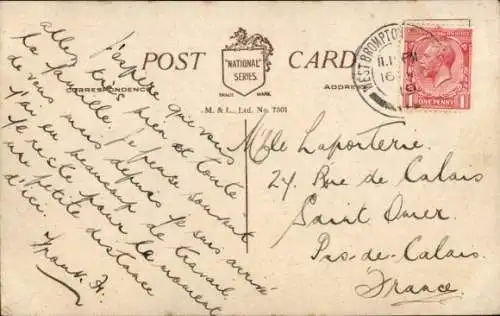 POST CARD
"NATIONAL"
SERIES
TRADE MARK.
CORRESPONDENCE
ADDRESS
M. & L., Ltd. No. 7501
WEST BROMPTON
11.1 PM
16
ONE PENNY
J'espère que vous
allez très bien et toute
la famille. Je pense souvent
de vous mais depuis je suis arrivé
j'ai eu beaucoup de travail.
Je reste pour le moment
un petite distance
d'ici.
Mlle Laporterie.
24 Rue de Calais
Saint Omer
Pas-de-Calais.
France.